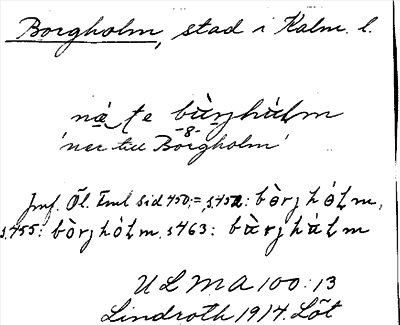 Borgholm, stad i Kalm. l.
nä te bùrjhùlm
-8-
'ner till Borgholm'
Jmf. Öl. Eml sid 450:=, s.452: bòrjhólm,
s.455: bòrjhòlm. s463: bàrjhàlm
ULMA 100:13
Lindroth 1914. Löt